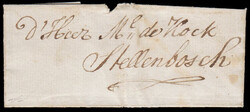 d'Heer Mr. de Kock
Stellenbosch